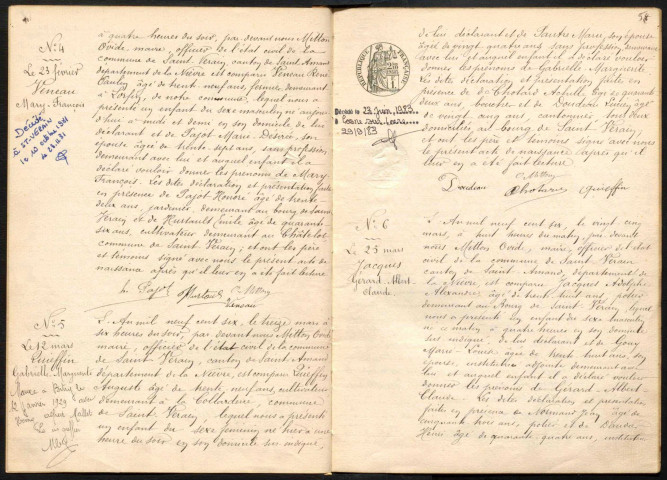 N° 4
Le 23 février
Veneau
Mary François
Décédé
à St-VERAIN
à quatre heures du soir, par devant nous Mellon
Ovide, maire, officier de l'état civil de la
commune de Saint Verain, canton de Saint Amand
département de la Nièvre est comparu Veneau René
âgé de trente neuf ans, fermier, demeurant
de notre commune, lequel nous a
présenté un enfant du sexe masculin né aujour
d'hui à midi et demi en son domicile de lui
déclarant et de Pajot Marie Désirée, son
épouse âgée de trente sept ans, sans profession,
demeurant avec lui et auquel enfant il a
déclaré vouloir donner les prénoms de Mary
François. Les dites déclaration et présentation faites
en présence de Pajot Honoré âgé de trente
deux ans, jardinier, demeurant au bourg de Saint
Verain et de Hurtault Emile âgé de quarante
six ans, cultivateur demeurant au Châtelot
commune de Saint Verain; et ont les père
et témoins signé avec nous le présent acte de
naissance après qu'il leur en a été fait lecture
h. Pajot Hurtault O. Mellon
Veneau
N° 5
Le 12 mars
Gabrielle Marguerite
L'An mil neuf cent six, le treize mars à
six heures du soir par devant nous Mellon Ovide
maire, officier de l'état civil de la commune
de Saint Verain, canton de Saint Amand
département de la Nièvre, est comparu
Auguste âgé de trente neuf ans, cultivateur
demeurant à la commune
de Saint Verain; lequel nous a présenté
un enfant du sexe féminin né hier à une
heure du soir en son domicile sus indiqué,
REPUBLIQUE FRANÇAISE
Décédée le 23 juin 1983
29 10 83
de lui déclarant et de Marie, son épouse
âgée de vingt quatre ans sans profession, demeurant
avec lui et auquel enfant il a déclaré vouloir
donner les prénoms de Gabrielle Marguerite
Les dites déclaration et présentation faites en
présence de âgé de quarante
deux ans, et de Doudeau âgé
de vingt ans, cantonnier, tous deux
domiciliés au bourg de Saint Verain;
et ont les père et témoins signé avec nous
le présent acte de naissance, après qu'il
leur en a été fait lecture
O. Mellon
Doudeau
N° 6
Le 25 mars
Jacques
Gérard Albert
Claude
L'An mil neuf cent six, le vingt cinq
mars, à huit heures du matin, par devant
nous Mellon Ovide, maire, officier de l'état
civil de la commune de Saint Verain
canton de Saint Amand, département de
la Nièvre, est comparu Jacques Adolphe
Alexandre âgé de trente huit ans potier
demeurant au Bourg de Saint Verain, lequel
nous a présenté un enfant du sexe masculin
né ce matin à quatre heures en son domicile
sus indiqué, de lui déclarant et de
Marie Louise âgée de trente huit ans, son
épouse, institutrice demeurant avec
lui et auquel enfant il a déclaré vouloir
donner les prénoms de Gérard Albert
Claude. Les dites déclaration et présentation
faites en présence de âgé de
cinquante trois ans, potier et de
Henri âgé de quarante quatre ans, instituteur